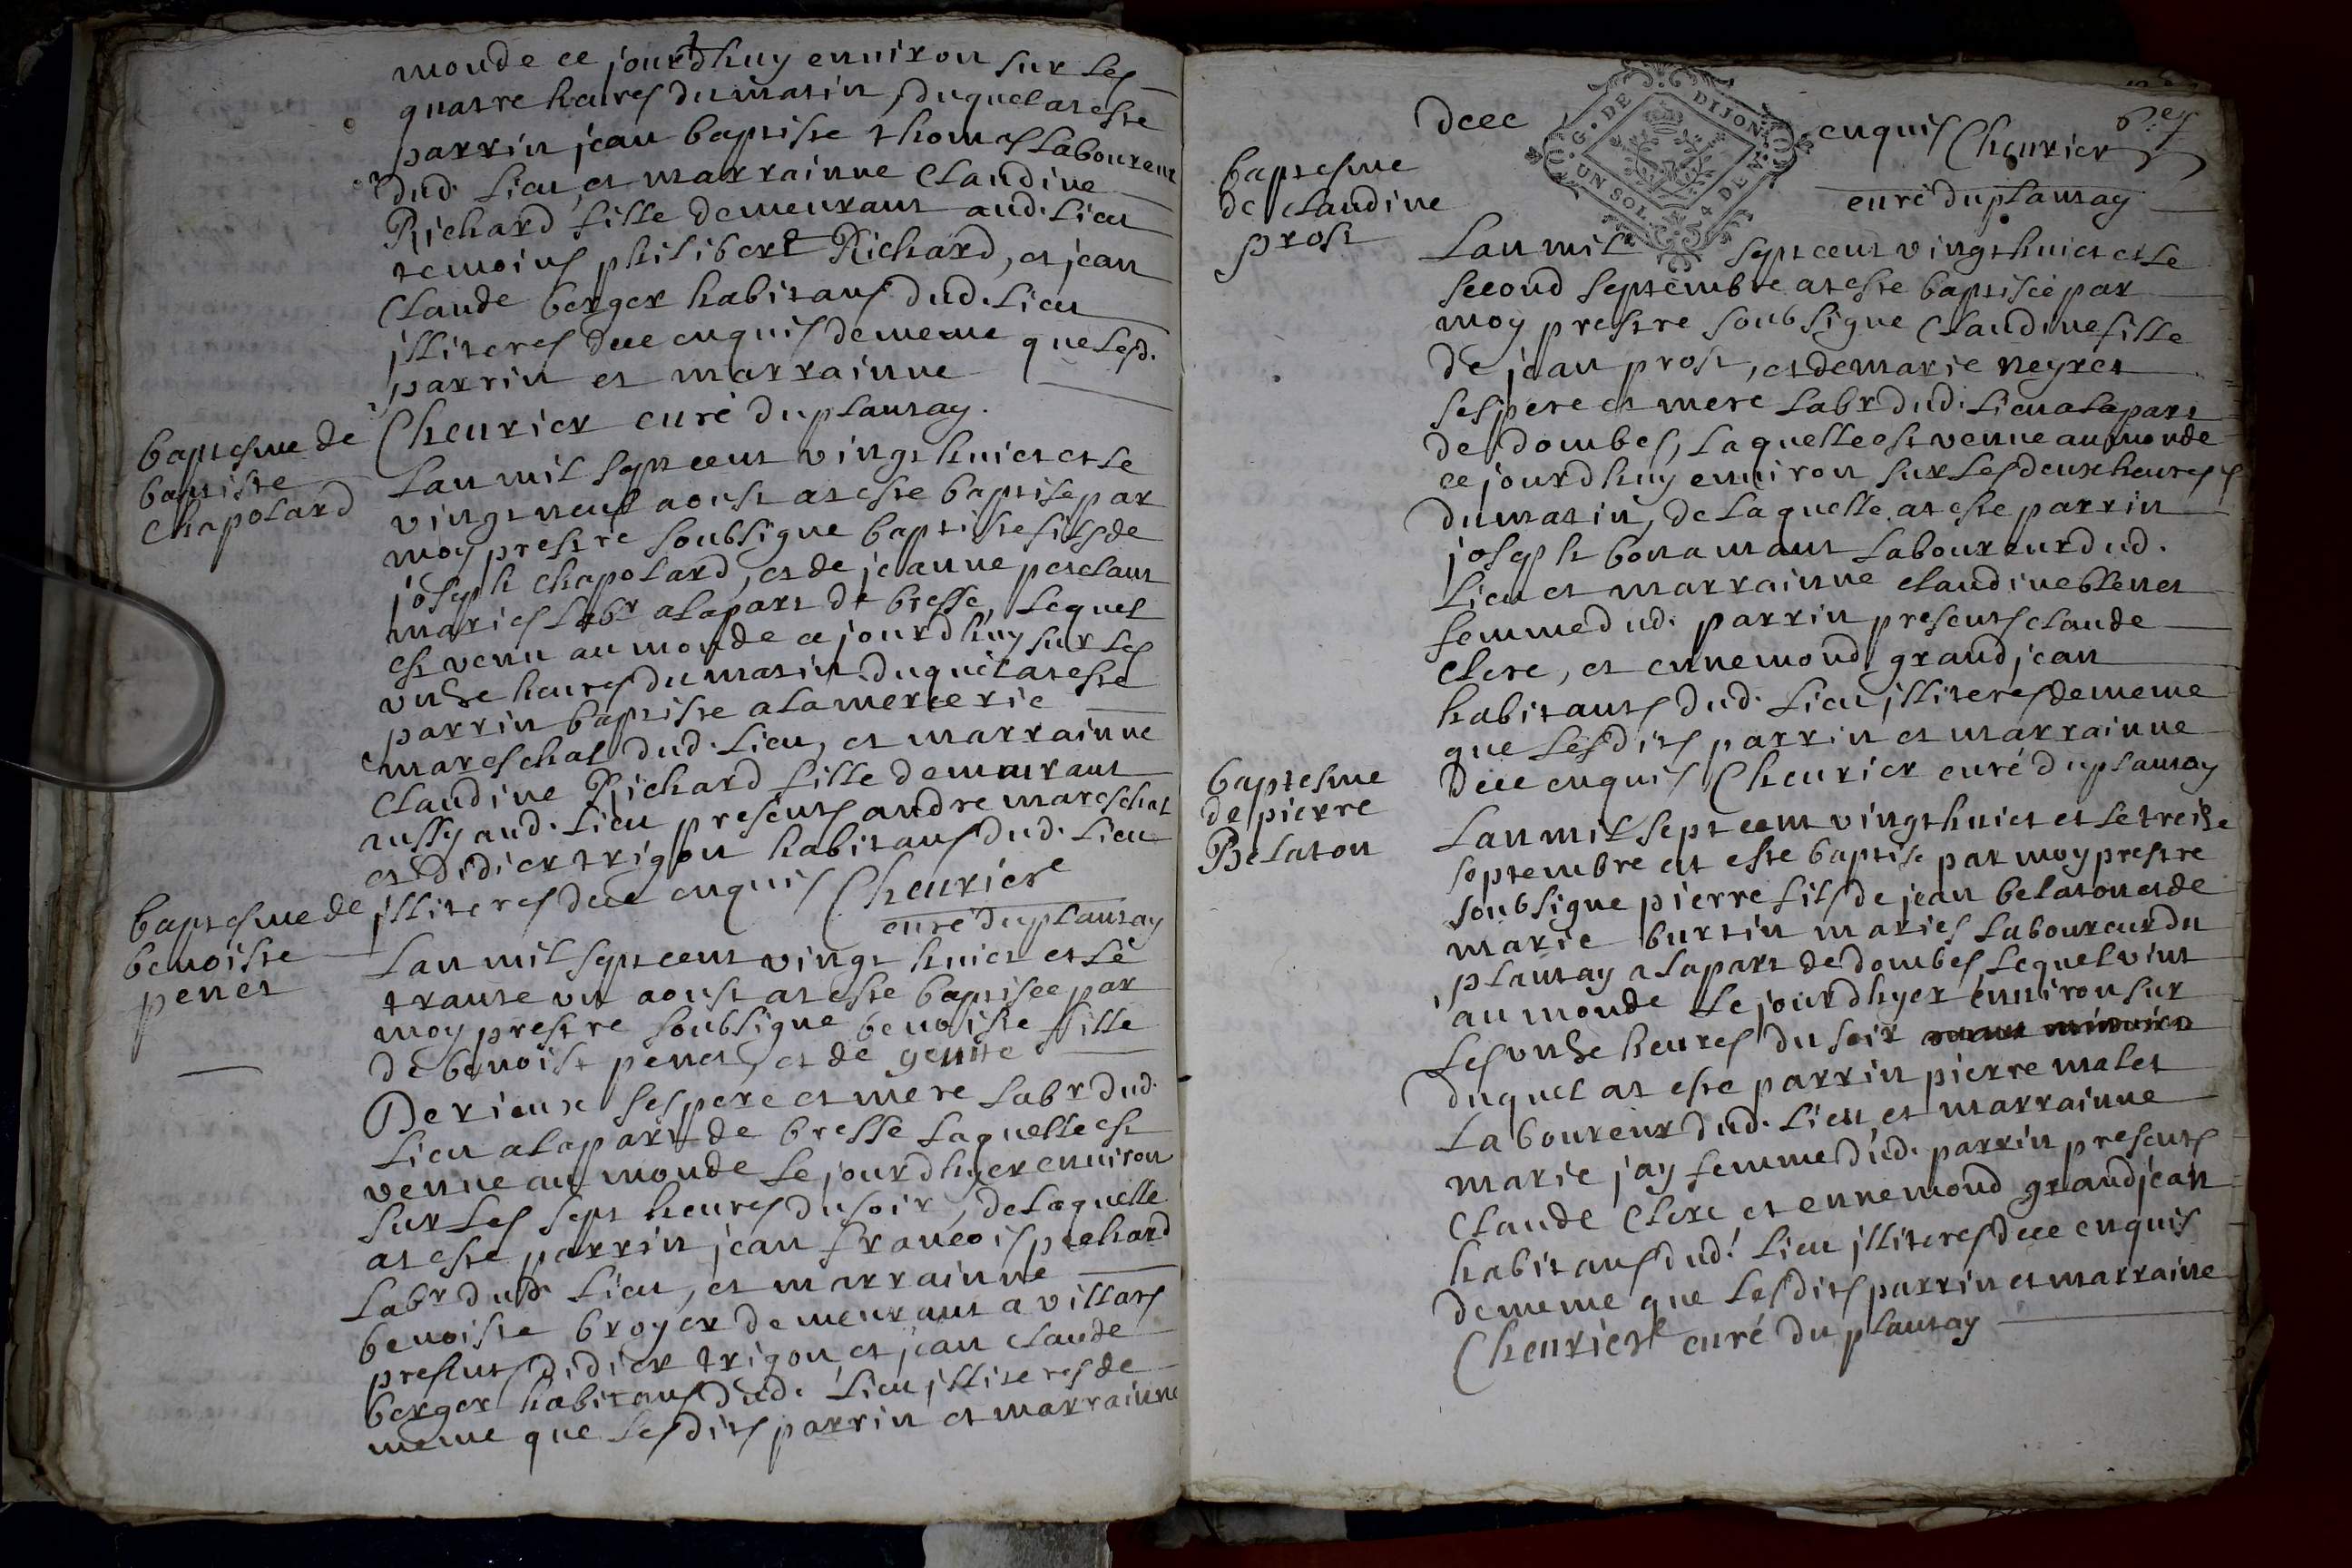 monde ce jourdhuy environ sur les
quatre heures du matin, duquel at este
parrin jean baptiste thomas Laboureur
dud. Lieu, et marrainne Claudine
Richard fille demeurant aud. Lieu
temoins philibert Richard, et jean
Claude berger habitans dud. Lieu
illiteres dece enquis dememe que lesd.
parrin et marrainne
Cheurier curé duplantay.
baptesme de
baptiste
chapolard
Lan mil sept cent vingt huict et le
vingt neuf aoust at este baptise par
moy prestre soubsigne baptiste fils de
joseph chapolard, et de jeanne perclant
maries Labr alapart de bresse, lequel
est venu au monde ce jourdhuy sur les
unze heures du matin duquel at este
parrin baptiste alamercerie
mareschal dud. Lieu, et marrainne
Claudine Richard fille demeurant
aussy aud. Lieu presents andre mareschal
et didier trigon habitans dud. Lieu
illiteres dece enquis Cheurier
curé duplantay
baptesme de
benoiste
penet
Lan mil sept cent vingt huict et le
trante un aoust at este baptisee par
moy prestre soubsigne benoiste fille
de benoist penet, et de
Derieux ses pere et mere Labr dud.
Lieu alapart de bresse laquelle est
venue au monde le jourdhyer environ
sur les sept heures du soir, de laquelle
at este parrin jean françois
Labr dud. Lieu, et marrainne
benoiste broyer demeurant a villars
presents didier trigon, et jean claude
berger habitans dud. Lieu illiteres de
meme que lesdits parrin et marrainne
dece enquis Cheurier
curé duplantay
G. DE DIJON
UN SOL. 4 DEN.
baptesme
de claudine
prost
Lan mil sept cent vingt huict et le
second septembre at este baptisée par
moy prestre soubsigne Claudine fille
de jean prost, et de marie neyret
ses pere et mere Labr dud. Lieu alapart
de dombes, laquelle est venue au monde
ce jourdhuy environ sur les deux heures
du matin, de laquelle at este parrin
joseph bonamant Laboureur dud.
Lieu et marrainne claudine blenet
femme dud. parrin presents claude
clerc, et ennemond grandjean
habitants dud. Lieu illiteres dememe
que lesdits parrin et marrainne
dece enquis Cheurier curé duplantay
baptesme
de pierre
Belaton
Lan mil sept cent vingt huict et le treize
septembre at este baptise par moy prestre
soubsigne pierre fils de jean belaton et de
marie burtin maries Laboureur du
plantay alapart de dombes lequel vint
au monde le jourdhyer environ sur
les unze heures du soir
duquel at este parrin pierre malet
Laboureur dud. Lieu et marrainne
marie jay femme dud. parrin presents
Claude Clerc et ennemond grandjean
habitans dud. Lieu illiteres dece enquis
dememe que lesdits parrin et marraine
Cheurier curé du plantay